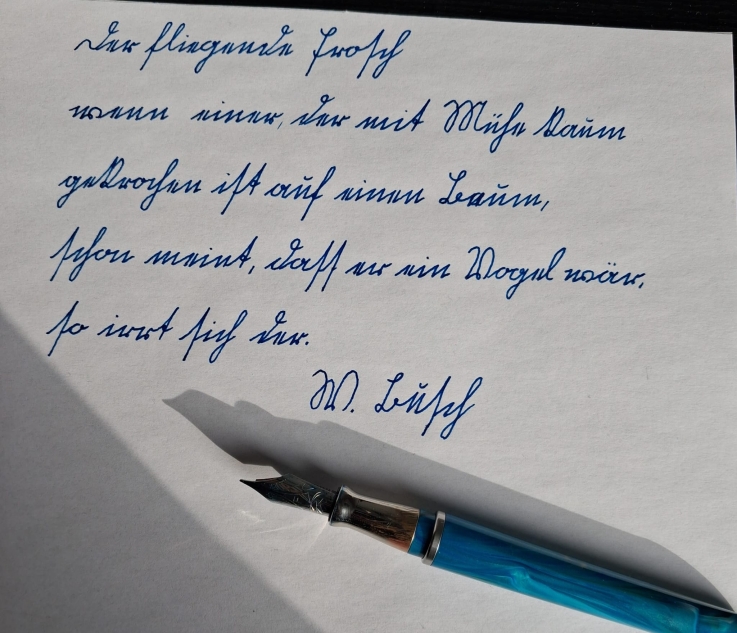 Der fliegende Frosch
wenn einer, der mit Mühe kaum
gekrochen ist auf einen Baum,
schon meint, dass er ein Vogel wär,
so irrt sich der.
W. Busch